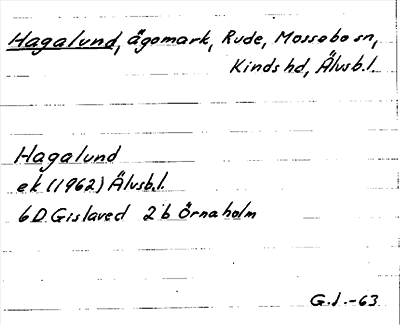 Hagalund, ägomark, Rude, Mossebo sn,
Kinds hd, Älvsb.l.
Hagalund
ek (1962) Älvsb.l.
6D Gislaved 2b Örnaholm
G.J.-63